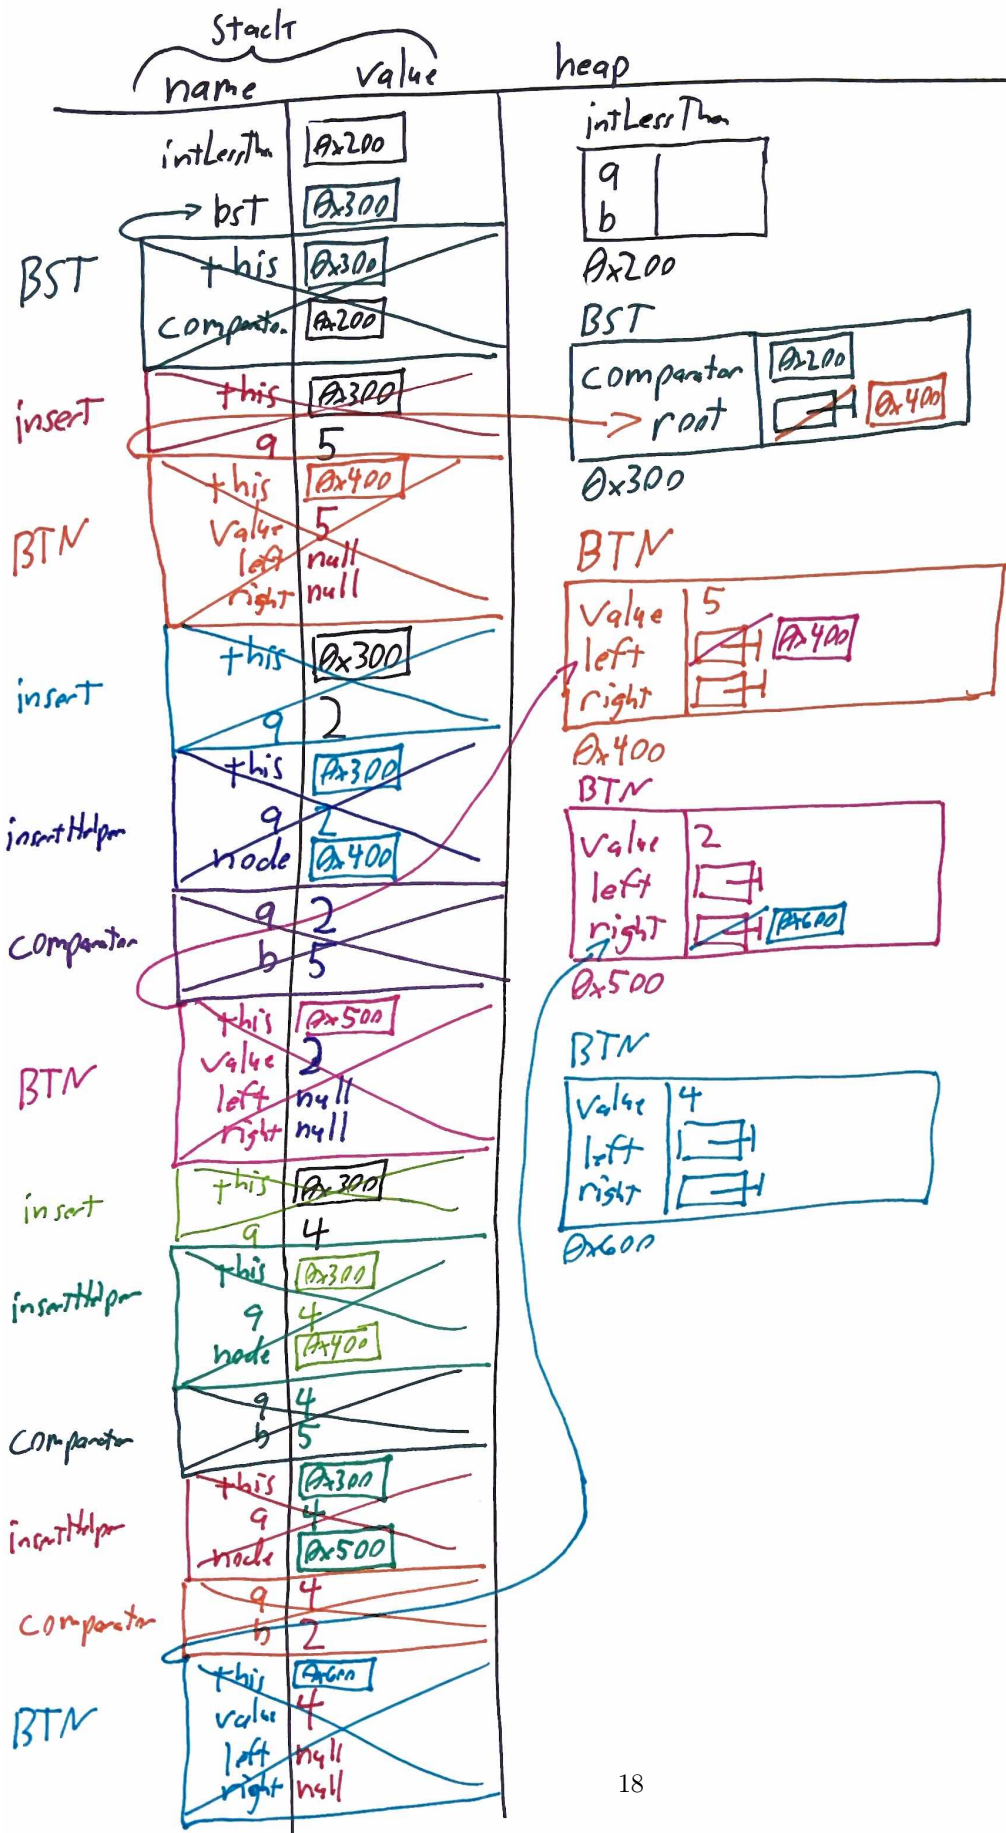 Stack
name value
intLessThan 0x200
bst 0x300
BST
this 0x300
comparator 0x200
insert
this 0x300
a 5
BTN
this 0x400
value 5
left null
right null
insert
this 0x300
a 2
insertHelper
this 0x300
a 2
node 0x400
comparator
a 2
b 5
BTN
this 0x500
value 2
left null
right null
insert
this 0x300
a 4
insertHelper
this 0x300
a 4
node 0x400
comparator
a 4
b 5
insertHelper
this 0x300
a 4
node 0x500
comparator
a 4
b 2
BTN
this 0x600
value 4
left null
right null
heap
intLessThan
a
b
0x200
BST
comparator 0x200
root 0x400
0x300
BTN
value 5
left 0x400
right
0x400
BTN
value 2
left
right 0x600
0x500
BTN
value 4
left
right
0x600
18